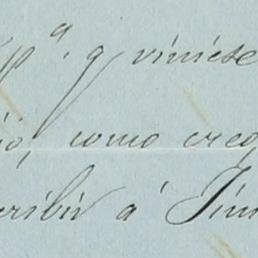 pª. q viniese
ió, como creo
cribir á Jim